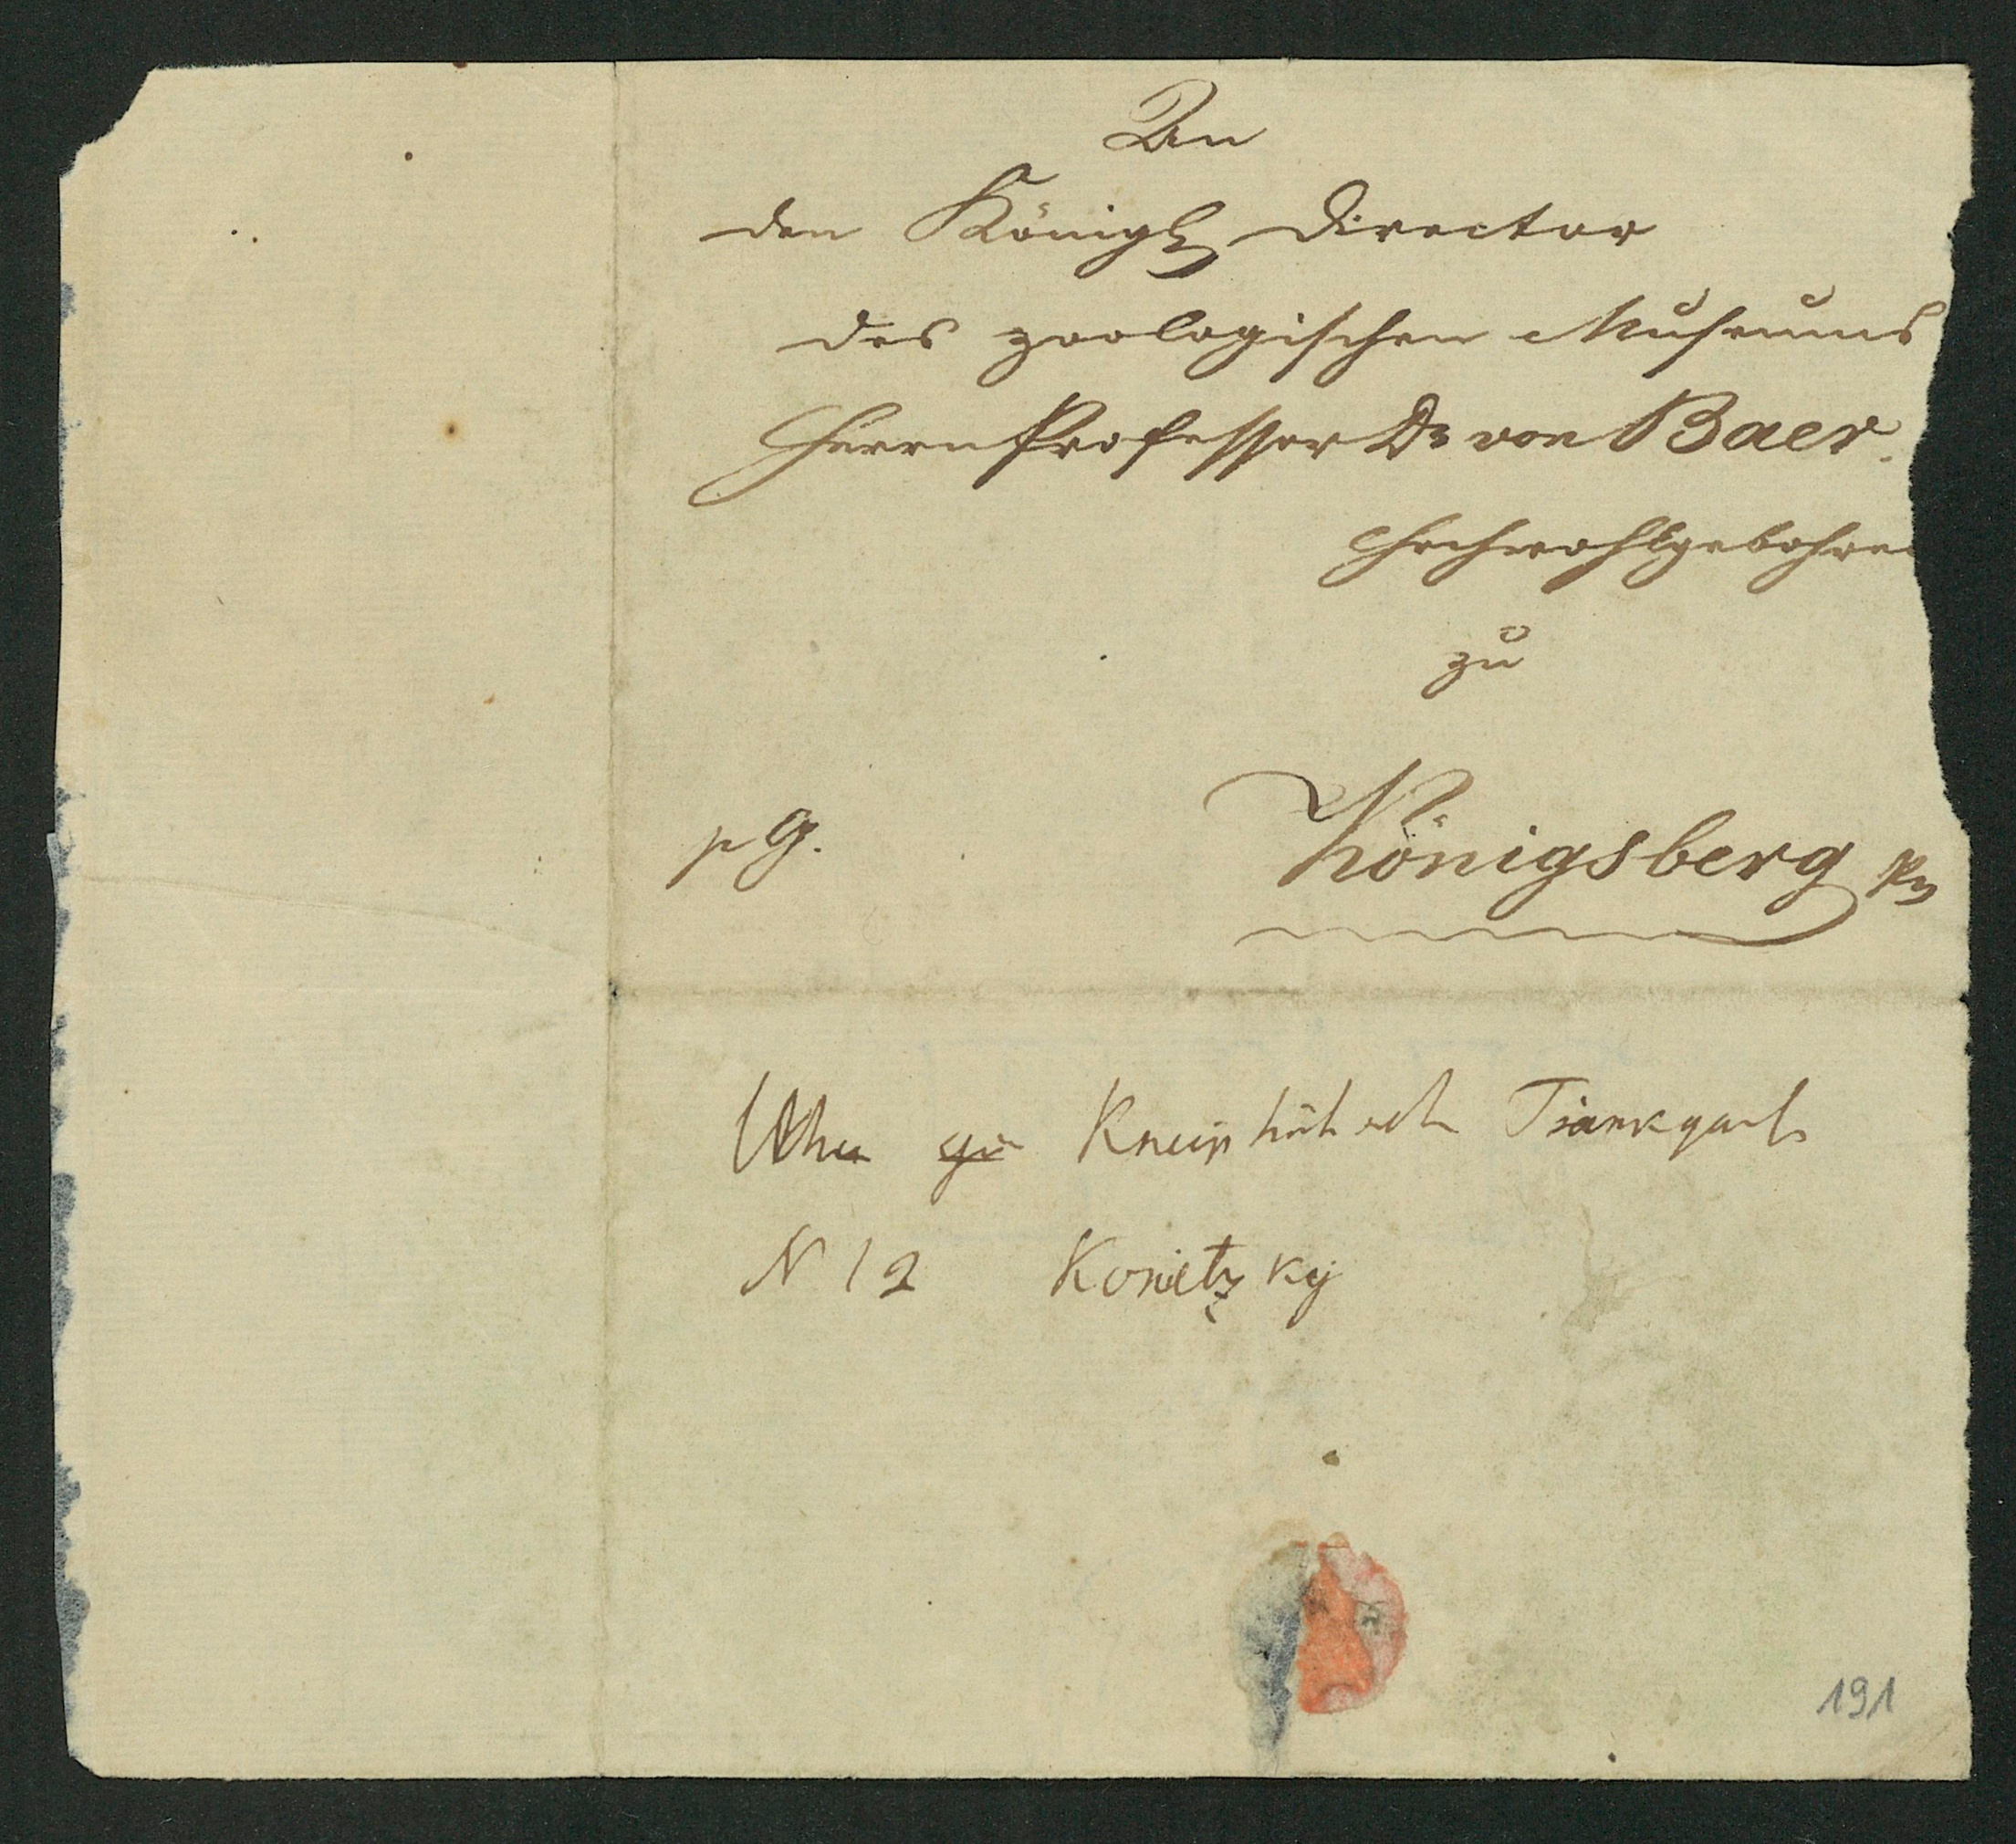 An
den Königl Director
des zoologischen Museums
Herrn Professor Dr von Baer.
Hochwohlgebohren
zu
p g.
Königsberg Pr
Kneiphöfsch
N 12 Konietzky
191